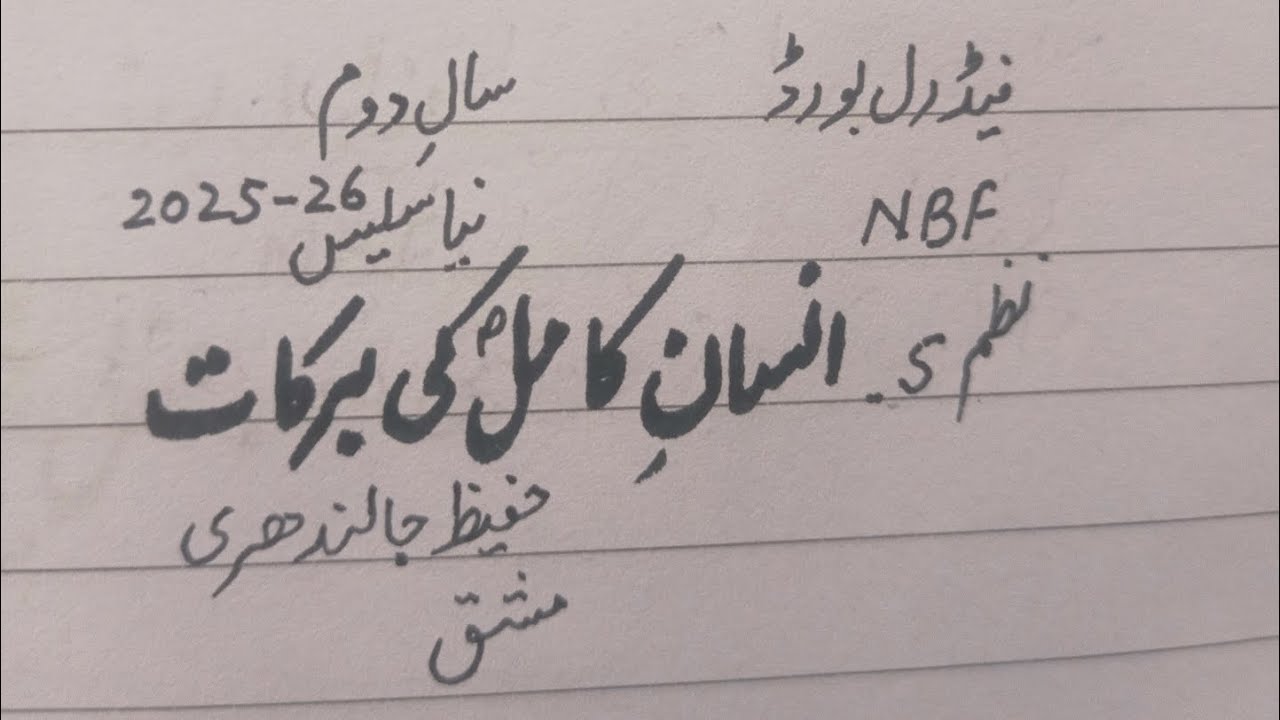 فیڈرل بورڈ سالِ دوم
NBF نیا سلیبس 2025-26
نظم 5۔ انسانِ کاملؐ کی برکات
حفیظ جالندھری
مشق